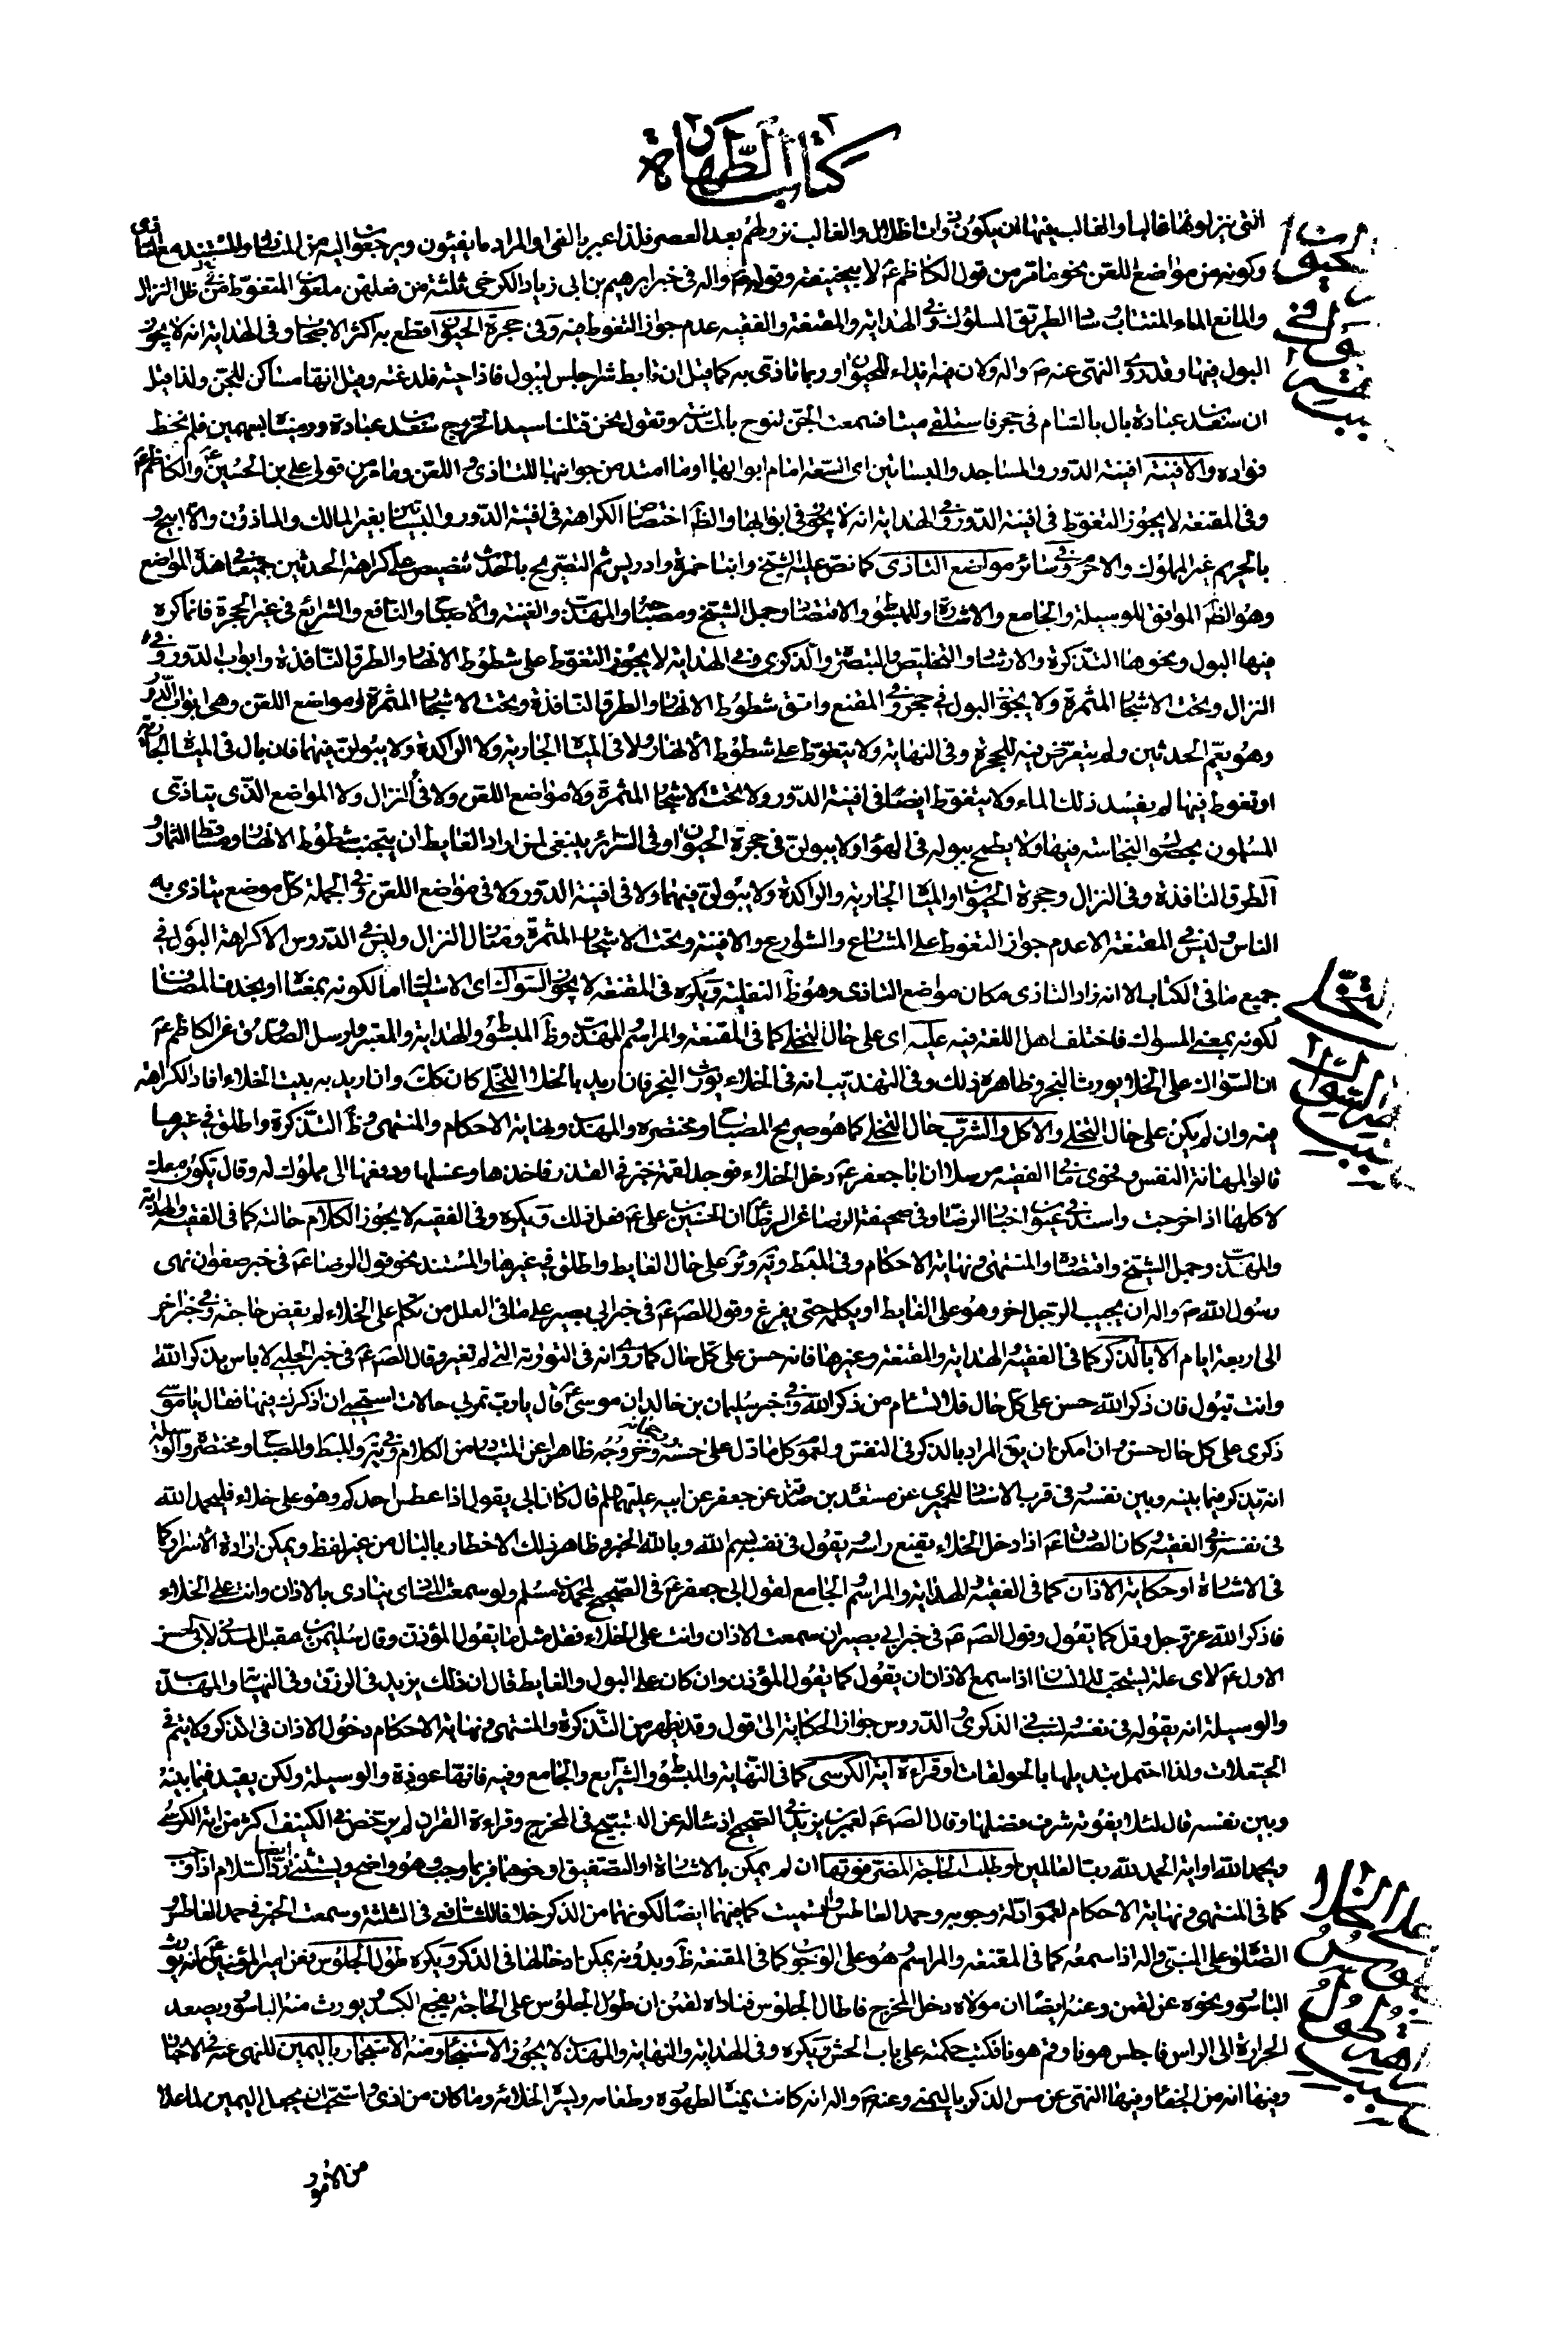 كتاب الطهارة
التى ينزلونها غالبا والغالب فيها ان يكون ذوات اظلال والغالب نزولهم بعد العصر فلذا عبر بالفئ او المراد ما يفيئون ويرجعون اليه من المنازل والمستند مع التاذى
وكونه من مواضع اللعن نحو ما مر من قول الكاظم ع لابيحنيفة وقوله ص واله فى خبر ابرهيم بن ابى زياد الكرخى ثلثة من فعلهن ملعون المتغوط فى ظل النزال
والمانع الماء المنتاب وساد الطريق المسلوك وفى الهداية والمقنعة والفقيه عدم جواز التغوط فيه وفى حجرة الحيوان قطع به اكثر الاصحاب وفى الهداية انه لا يجوز
البول فيها وقد روى النهى عنه ص واله ولان فيه ايذاء للحيوان وربما تاذى به كما قيل ان تابط شرا جلس ليبول فاذا حية فلدغته وقيل انها مساكن للجن ولذا قيل
ان سعد بن عبادة بال بالشام فى حجر فاستلقى ميتا فسمعت الجن تنوح بالمدينة وتقول نحن قتلنا سيد الخزرج سعد بن عبادة ورميناه بسهمين فلم نخط
فؤاده والافنية افنية الدور والمساجد والبساتين اى السعة امام ابوابها او ما امتد من جوانبها للتاذى واللعن وما مر من قولى على بن الحسين ع والكاظم ع
وفى المقنعة لا يجوز التغوط فى افنية الدور وفى الهداية انه لا يجوز فى ابوابها والظ اختصاص الكراهة فى افنية الدور والبساتين بغير المالك والماذون والا ابيح و
بالحريم غير المملوك والا حرم وفى سائر مواضع التاذى كما نص عليه الشيخ وابنا حمزة وادريس ثم التصريح بالحدث تنصيص على كراهة الحدثين جميعا فى هذه المواضع
وهو الظ الموافق للوسيلة والجامع والاشارة والمبسوط والاقتصاد وجمل الشيخ ومصباحه والمهذب والغنية والاصباح والنافع والشرائع فى غير الحجرة فانما كره
فيها البول ونحوها التذكرة والارشاد والتلخيص والتبصرة والذكرى وفى الهداية لا يجوز التغوط على شطوط الانهار والطرق النافذة وابواب الدور وفئ
النزال وتحت الاشجار المثمرة ولا يجوز البول فى حجر وفى المقنع واتق شطوط الانهار والطرق النافذة وتحت الاشجار المثمرة ومواضع اللعن وهى ابواب الدور
وهو يعم الحدثين ولم يتعرض فيه للحجرة وفى النهاية ولا يتغوط على شطوط الانهار ولا فى المياه الجارية ولا الراكدة ولا يبولن فيهما فان بال فى المياه الجارية
او تغوط فيها لم يفسد ذلك الماء ولا يتغوط ايضا فى افنية الدور ولا تحت الاشجار المثمرة ولا مواضع اللعن ولا فئ النزال ولا المواضع الذى يتاذى
المسلمون بحصول النجاسة فيها ولا يطمح ببوله فى الهواء ولا يبولن فى حجرة الحيوان وفى السرائر ينبغى لمن اراد الغايط ان يتجنب شطوط الانهار ومساقط الثمار و
الطرق النافذة وفئ النزال وحجرة الحيوان والمياه الجارية والراكدة ولا يبولن فيهما ولا فى افنية الدور ولا فى مواضع اللعن وفى الجملة كل موضع يتاذى به
الناس وليس فى المقنعة الا عدم جواز التغوط على المشارع والشوارع والافنية وتحت الاشجار المثمرة ومنازل النزال وليس فى الدروس الا كراهة البول فى
جميع ما فى الكتاب الا انه زاد التاذى مكان مواضع التاذى وهو ظ النفلية ويكره فى المقنعة لا يجوز السواك اى الاستياك اما لكونه بمعناه او بحذف المضاف
لكونه بمعنى المسواك فاختلف اهل اللغة فيه عليه اى على حال التخلى كما فى المقنعة والمراسم والمهذب وظ المبسوط والهداية والمعتبر وارسل الصدوق عن الكاظم ع
ان السواك على الخلاء يورث البخر وظاهره ذلك وفى التهذيب انه فى الخلاء يورث البخر فان اريد بالخلاء التخلى كان كك وان اريد به بيت الخلاء افاد الكراهة
فيه وان لم يكن على حال التخلى والاكل والشرب حال التخلى كما هو صريح المصباح ومختصره والمهذب ونهاية الاحكام والمنتهى وظ التذكرة واطلق فى غيرها
قالوا لمهانة النفس وفحوى ما فى الفقيه مرسلا ان ابا جعفر ع دخل الخلاء فوجد لقمة خبز فى القذر فاخذها وغسلها ودفعها الى مملوك له وقال يكون معك
لاكلها اذا خرجت واسند فى عيون اخبار الرضا وفى صحيفة الرضا عن الرضا ع ان الحسين بن على ع فعل ذلك ويكره وفى الفقيه لا يجوز الكلام حالته كما فى الفقيه والهداية
والمهذب وجمل الشيخ واقتصاده والمنتهى ونهاية الاحكام وفى المبسوط وية وئر على حال الغايط واطلق فى غيرها والمستند نحو قول الرضا ع فى خبر صفوان نهى
رسول الله ص واله ان يجيب الرجل اخر وهو على الغايط او يكلمه حتى يفرغ وقول الص ع فى خبر ابى بصير على ما فى العلل من تكلم على الخلاء لم يقض حاجته وفى خبر اخر
الى اربعة ايام الا بالذكر كما فى الفقيه والهداية والمقنعة وغيرها فانه حسن على كل حال كما روى انه فى التورية التى لم تغير وقال الص ع فى خبر الحلبى لا باس بذكر الله
وانت تبول فان ذكر الله حسن على كل حال فلا تسام من ذكر الله وفى خبر سليمان بن خالد ان موسى ع قال يا رب تمر بى حالات استحيى ان اذكرك فيها فقال يا موسى
ذكرى على كل حال حسن وان امكن ان يق المراد بالذكر فى النفس ولعموم كل ما دل على حسنه ورجحانه وخروجه ظاهرا عن المتبادر من الكلام وفى ير والمبسط والمصباح ومختصره والوسيلة
انه يذكر فيما بينه وبين نفسه فى قرب الاسناد للحميرى عن مسعدة بن صدقة عن جعفر عن ابيه عليهما السلام قال كان ابى يقول اذا عطس احدكم وهو على خلاء فليحمد الله
فى نفسه وفى الفقيه كان الصادق ع اذا دخل الخلاء يقنع راسه يقول فى نفسه بسم الله وبالله الخبر وظاهر ذلك الاخطار بالبال من غير لفظ ويمكن ارادة الاسرار كما
فى الاشارة او حكاية الاذان كما فى الفقيه والهداية والمراسم والجامع لقول ابى جعفر ع فى الصحيح لمحمد بن مسلم ولو سمعت المنادى ينادى بالاذان وانت على الخلاء
فاذكر الله عز وجل وقل كما يقول وقول الص ع فى خبر ابى بصير ان سمعت الاذان وانت على الخلاء فقل مثل ما يقول المؤذن وقال سليمن بن مقبل المدنى لابى الحسن
الاول ع لاى علة يستحب للانسان اذا سمع الاذان ان يقول كما يقول المؤذن وان كان على البول والغايط قال ان ذلك يزيد فى الرزق وفى النهاية والمهذب
والوسيلة انه يقوله فى نفسه ونسب فى الذكرى والدروس جواز الحكاية الى قول وقد يظهر من التذكرة والمنتهى ونهاية الاحكام دخول الاذان فى الذكر ولا يتم فى
الحيعلات ولذا احتمل تبديلها بالحولقات او قراءة اية الكرسى كما فى النهاية والمبسوط والشرايع والجامع وفيه فانها عوذة والوسيلة ولكن يقيد فيما بينه
وبين نفسه قال لئلا يفوته شرف فضلها وقال الص ع لعمر بن يزيد فى الصحيح اذ سئاله عن التسبيح فى المخرج وقراءة القران لم يرخص فى الكنيف اكثر من اية الكرسى
ويحمد الله او اية الحمد لله رب العالمين او طلب الحاجة المضر فوتها ان لم يمكن بالاشارة او التصفيق او نحوهما فربما وجب وهو واضح ويستثنى ايضا رد السلام اذا وجب
كما فى المنتهى ونهاية الاحكام لعموم ادلة وجوبه وحمد العاطس والتسميت كما فيهما ايضا لكونهما من الذكر خلافا للشافعى فى الثلثة وسمعت الخبر فى حمد العاطس و
الصلوة على النبى واله اذا سمعه كما فى المقنعة والمراسم وهو على الوجوب كما فى المقنعة ظ وبدونه يمكن ادخالها فى الذكر ويكره طول الجلوس فعن امير المؤمنين ع انه يورث
الباسور ونحوه عن لقمن وعنه ايضا ان مولاه دخل المخرج فاطال الجلوس فناداه لقمن ان طول الجلوس على الحاجة يفجع الكبد ويورث منه الباسور ويصعد
الحرارة الى الراس فاجلس هونا وقم هونا فكتب حكمته على باب الحش ويكره وفى الهداية والنهاية والمهذب لا يجوز الاستنجاء ومنه الاستجمار باليمين للنهى عنه فى الاخبار
وفيها انه من الجفاء وفيها النهى عن مس الذكر باليمنى وعنه ص واله انه كانت يمناه لطهوره وطعامه ويسراه لخلائه وما كان من اذى واستحب ان يجعل اليمين لما علا
من الامور